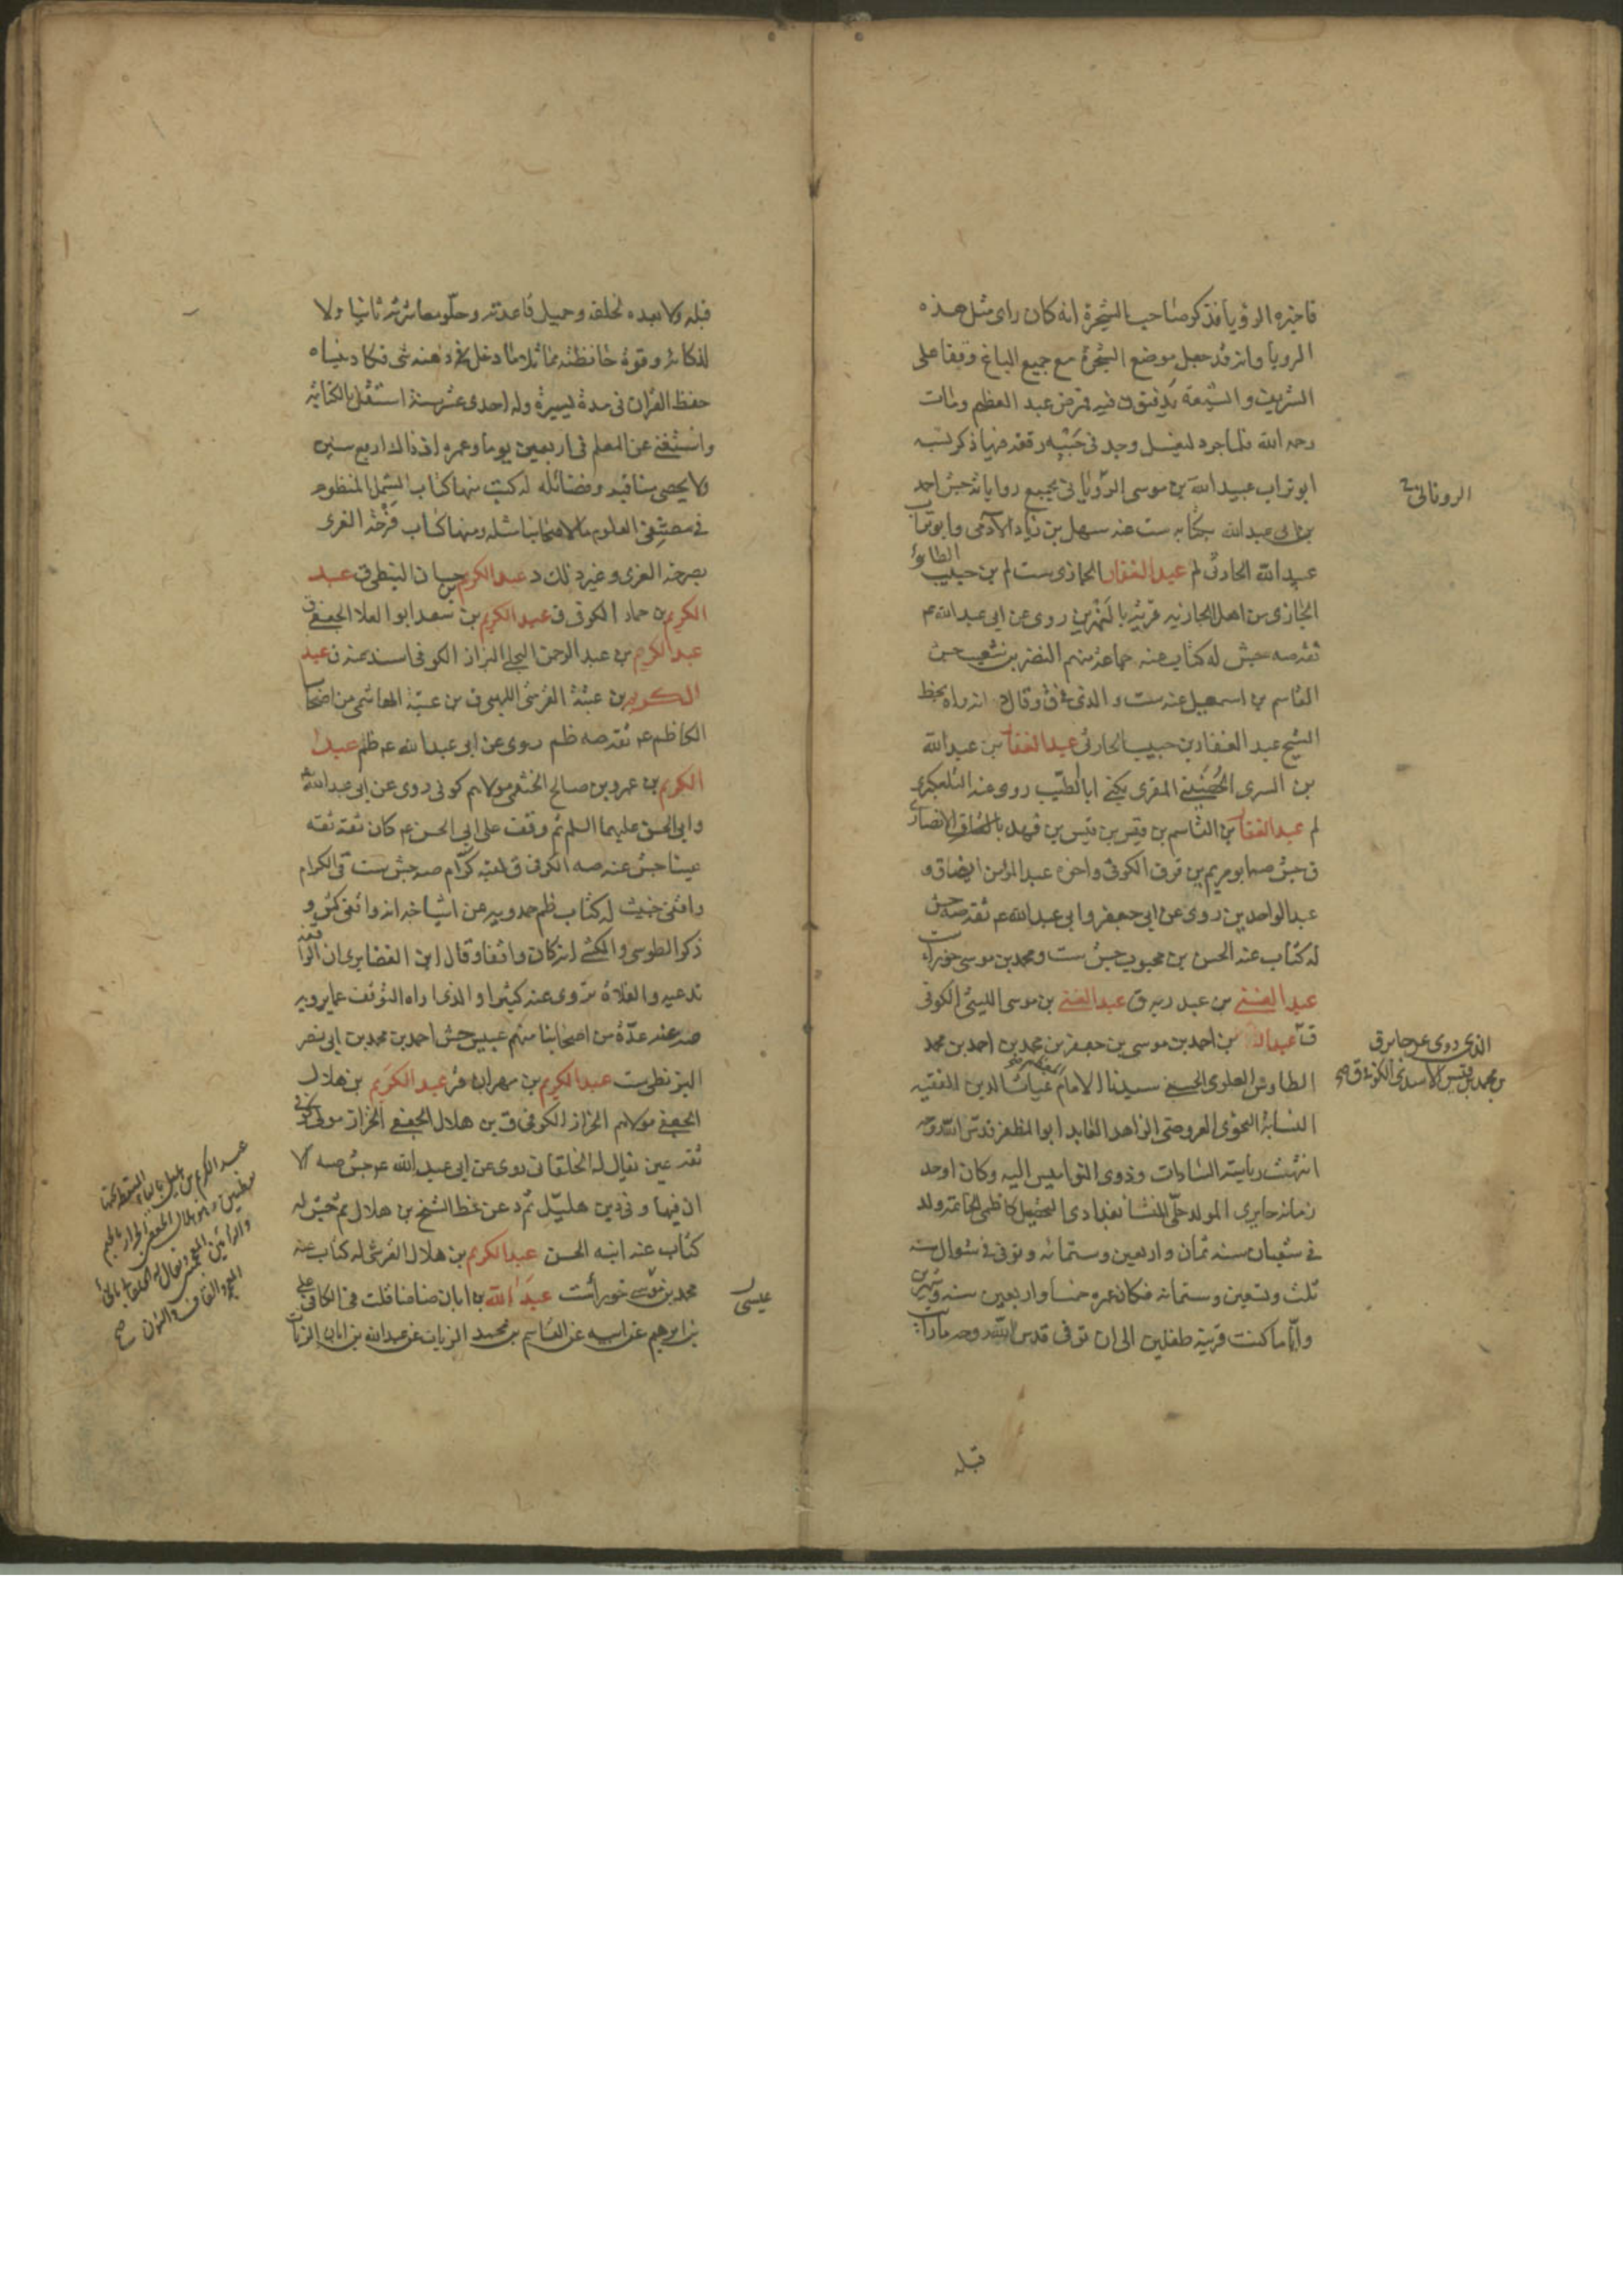 فاخبره الرؤيا فذكر صاحب الشجرة انه كان راى مثل هذه
الرويا وانه قد جعل موضع الشجرة مع جميع الباغ وقفا على
الشريف والشيعة يدفنون فيه فمرض عبد العظيم ومات
رحمه الله فلما جرد ليغسل وجد في جيبه رقعة فيها ذكر نسبه
ابو تراب عبيد الله بن موسى الروياني بجميع رواياته جش احمد
بن ابي عبد الله بكتابه ست عنه سهل بن زياد الآدمي وابوتراب
عبيد الله الحارثي لم عبد الغفار الجازى ست لم بن حبيب الطائي
الجازى من اهل الجازية قرية بالنهرين روى عن ابي عبد الله ع
ثقة صه جش له كتاب عنه جماعة منهم النضر بن شعيب جش
القاسم بن اسمعيل عنه ست والذى في ق وقال د انه راه بخط
الشيخ عبد الغفار بن حبيب الحارثي عبد الغفار بن عبد الله
بن السرى الحضيني المقرى يكنى ابا الطيب روى عنه التلعكبرى
لم عبد الغفار بن القاسم بن قيس بن قيس بن قهد بالقاف الانصارى
ق جش صه ابو مريم بن قرق الكوفى واخوه عبد المؤمن ايضا ق و
عبد الواحد بن روى عن ابي جعفر وابي عبد الله ع ثقة صه جش
له كتاب عنه الحسن بن محبوب جش ست ومحمد بن موسى خوراء ست
عبد الغنى بن عبد ربه ق عبد الغنى بن موسى الليثي الكوفى
ق عبد الكريم بن احمد بن موسى بن جعفر بن محمد بن احمد بن محمد
الطاوس العلوى الحسنى سيدنا الامام المعظم غياث الدين الفقيه
النسابة النحوى العروضي الزاهد العابد ابو المظفر قدس الله روحه
انتهت رياسة السادات وذوى النواميس اليه وكان اوحد
زمانه حايرى المولد حلى المنشا بغدادى التحصيل كاظمى الخاتمة ولد
في شعبان سنة ثمان واربعين وستمائه وتوفى في شوال سنة
ثلث وتسعين وستمائه فكان عمره خمسا واربعين سنة وشهرين
واياما كنت قرينه طفلين الى ان توفى قدس الله روحه ما رايت
قبله
الروياني
الذى روى عن جابر ق
بن محمد بن قيس الاسدى الكوفى ق صح
قبله ولا بعده كخلقه وجميل قاعدته وحلو معاشرته ثانيا ولا
لذكائه وقوة حافظته مماثلا ما دخل في ذهنه شي فكاد ينساه
حفظ القران في مدة يسيرة وله احدى عشر سنة استقل بالكتابة
واستغنى عن المعلم في اربعين يوما وعمره اذ ذاك اربع سنين
ولا يحصى مناقبه وفضائله له كتب منها كتاب الشمل المنظوم
في مصنفى العلوم ما لاصحابنا مثله ومنها كتاب فرحة الغرى
بصرحة الغرى وغير ذلك د عبد الكريم بن حسان النبطى ق عبد
الكريم بن حماد الكوفى ق عبد الكريم بن سعد ابو العلا الجعفى ق
عبد الكريم بن عبد الرحمن البجلي البزاز الكوفى اسند عنه ق عبد
الكريم بن عتبة القرشى اللهبى ق بن عتبة الهاشمى من اصحاب
الكاظم ع ثقة صه ظم روى عن ابي عبد الله ع ظم عبد
الكريم بن عمرو بن صالح الخثعمى مولاهم كوفى روى عن ابي عبد الله
وابي الحسن عليهما السلم ثم وقف على ابي الحسن ع كان ثقة ثقة
عينا جش عنه صه الكوفى ق لقبه كرّام صه جش ست ق الكرام
واقفى خبيث له كتاب ظم حمدويه عن اشياخه انه واقفى كش و
ذكر الطوسى والكشى انه كان واقفا وقال ابن الغضايرى ان الواقفة
تدعيه والغلاة تروى عنه كثيرا والذى اراه التوقف عما يرويه
صه عنه عدة من اصحابنا منهم عبيس جش احمد بن محمد بن ابي نصر
البزنطى ست عبد الكريم بن مهران قر عبد الكريم بن هلال
الجعفى مولاهم الخزاز الكوفى ق بن هلال الجعفى الخزاز مولى كوفى
ثقة عين يقال له الخلقانى روى عن ابي عبد الله ع جش صه الا
ان فيها و في د بن هليل ثم د عن خط الشيخ بن هلال ثم جش له
كتاب عنه ابنه الحسن عبد الكريم بن هلال القرشى له كتاب عنه
محمد بن موسى خوراء ست عبد الله بن ابان ضا ضا قلت في الكافى على
بن ابرهيم عن ابيه عن القاسم بن محمد الزيات عن عبد الله بن ابان الزيات
عيسى